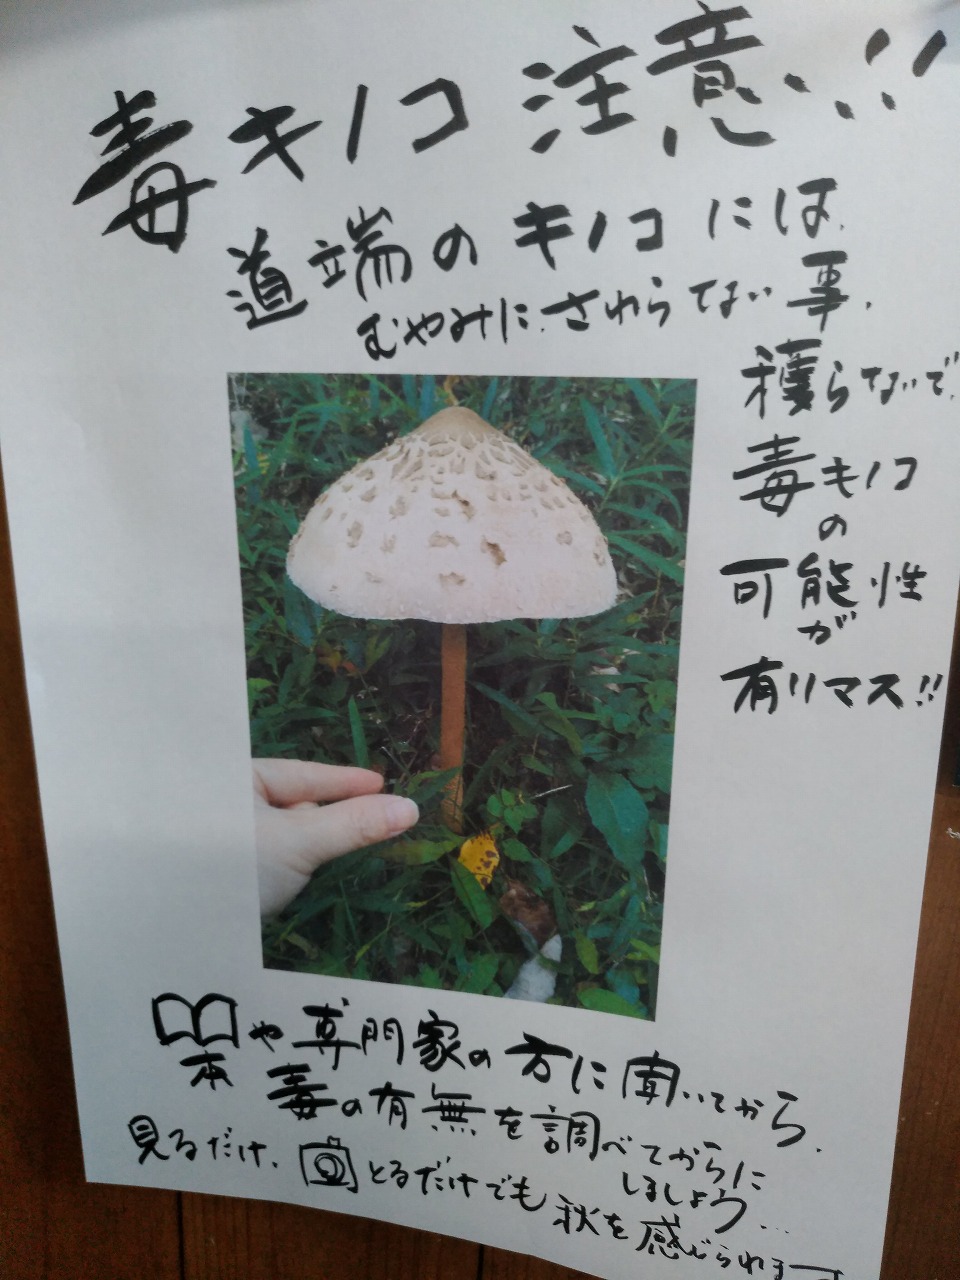 毒キノコ注意!!
道端のキノコには、
むやみに、さわらない事。
穫らないで、
毒キノコ
の
可能性
が
有リマス!!
や専門家の方に聞いてから、
本
毒の有無を調べてからに
しましょう…
見るだけ、とるだけでも秋を感じられます